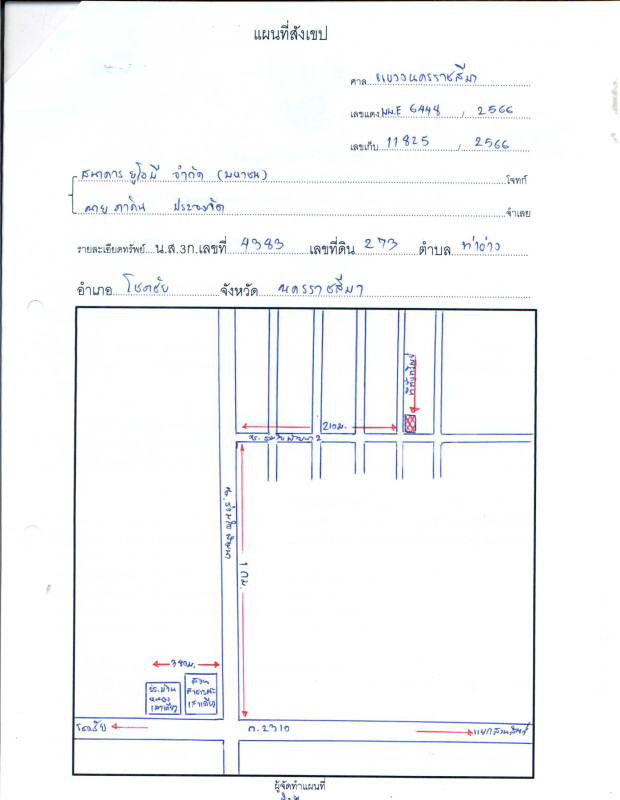 แผนที่สังเขป
ศาล แขวงนครราชสีมา
เลขแดง ผบ.E 6448 / 2566
เลขเก็บ 11825 / 2566
ธนาคาร ยูโอบี จำกัด (มหาชน) โจทก์
นาย ภาคิน จำเลย
รายละเอียดทรัพย์ น.ส.3ก.เลขที่ 4383 เลขที่ดิน 273 ตำบล ท่าอ่าง
อำเภอ โชคชัย จังหวัด นครราชสีมา
ที่ตั้งทรัพย์
210 ม.
ซ. ร่วมใจพัฒนา 2
ถ. ร่วมใจ พัฒนา
1 กม.
380 ม.
รร. บ้าน
(ลาเดียว)
สวน
โชคชัย
ถ. 2310
ผู้จัดทำแผนที่